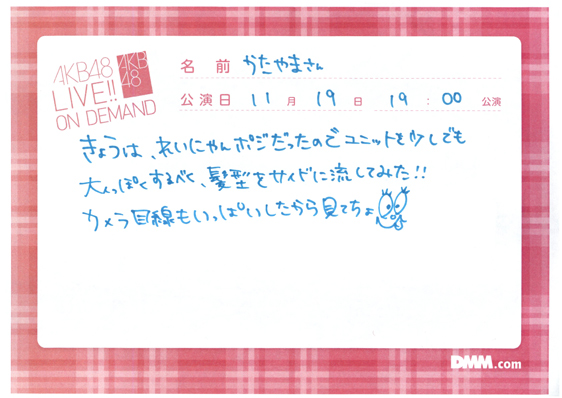 AKB48
LIVE!!
ON DEMAND
AKB
48
名 前 かたやまさん
公演日 11 月 19 日 19 : 00 公演
きょうは、れいにゃんポジだったのでユニットを少しでも
大人っぽくするべく、髪型をサイドに流してみた!!
カメラ目線もいっぱいしたから見てちょ
DMM.com